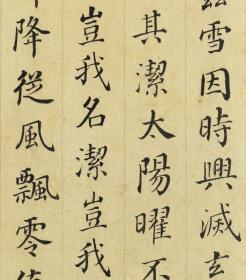 雪因時興滅玄
其潔太陽曜不
豈我名潔豈我
降從風飄零